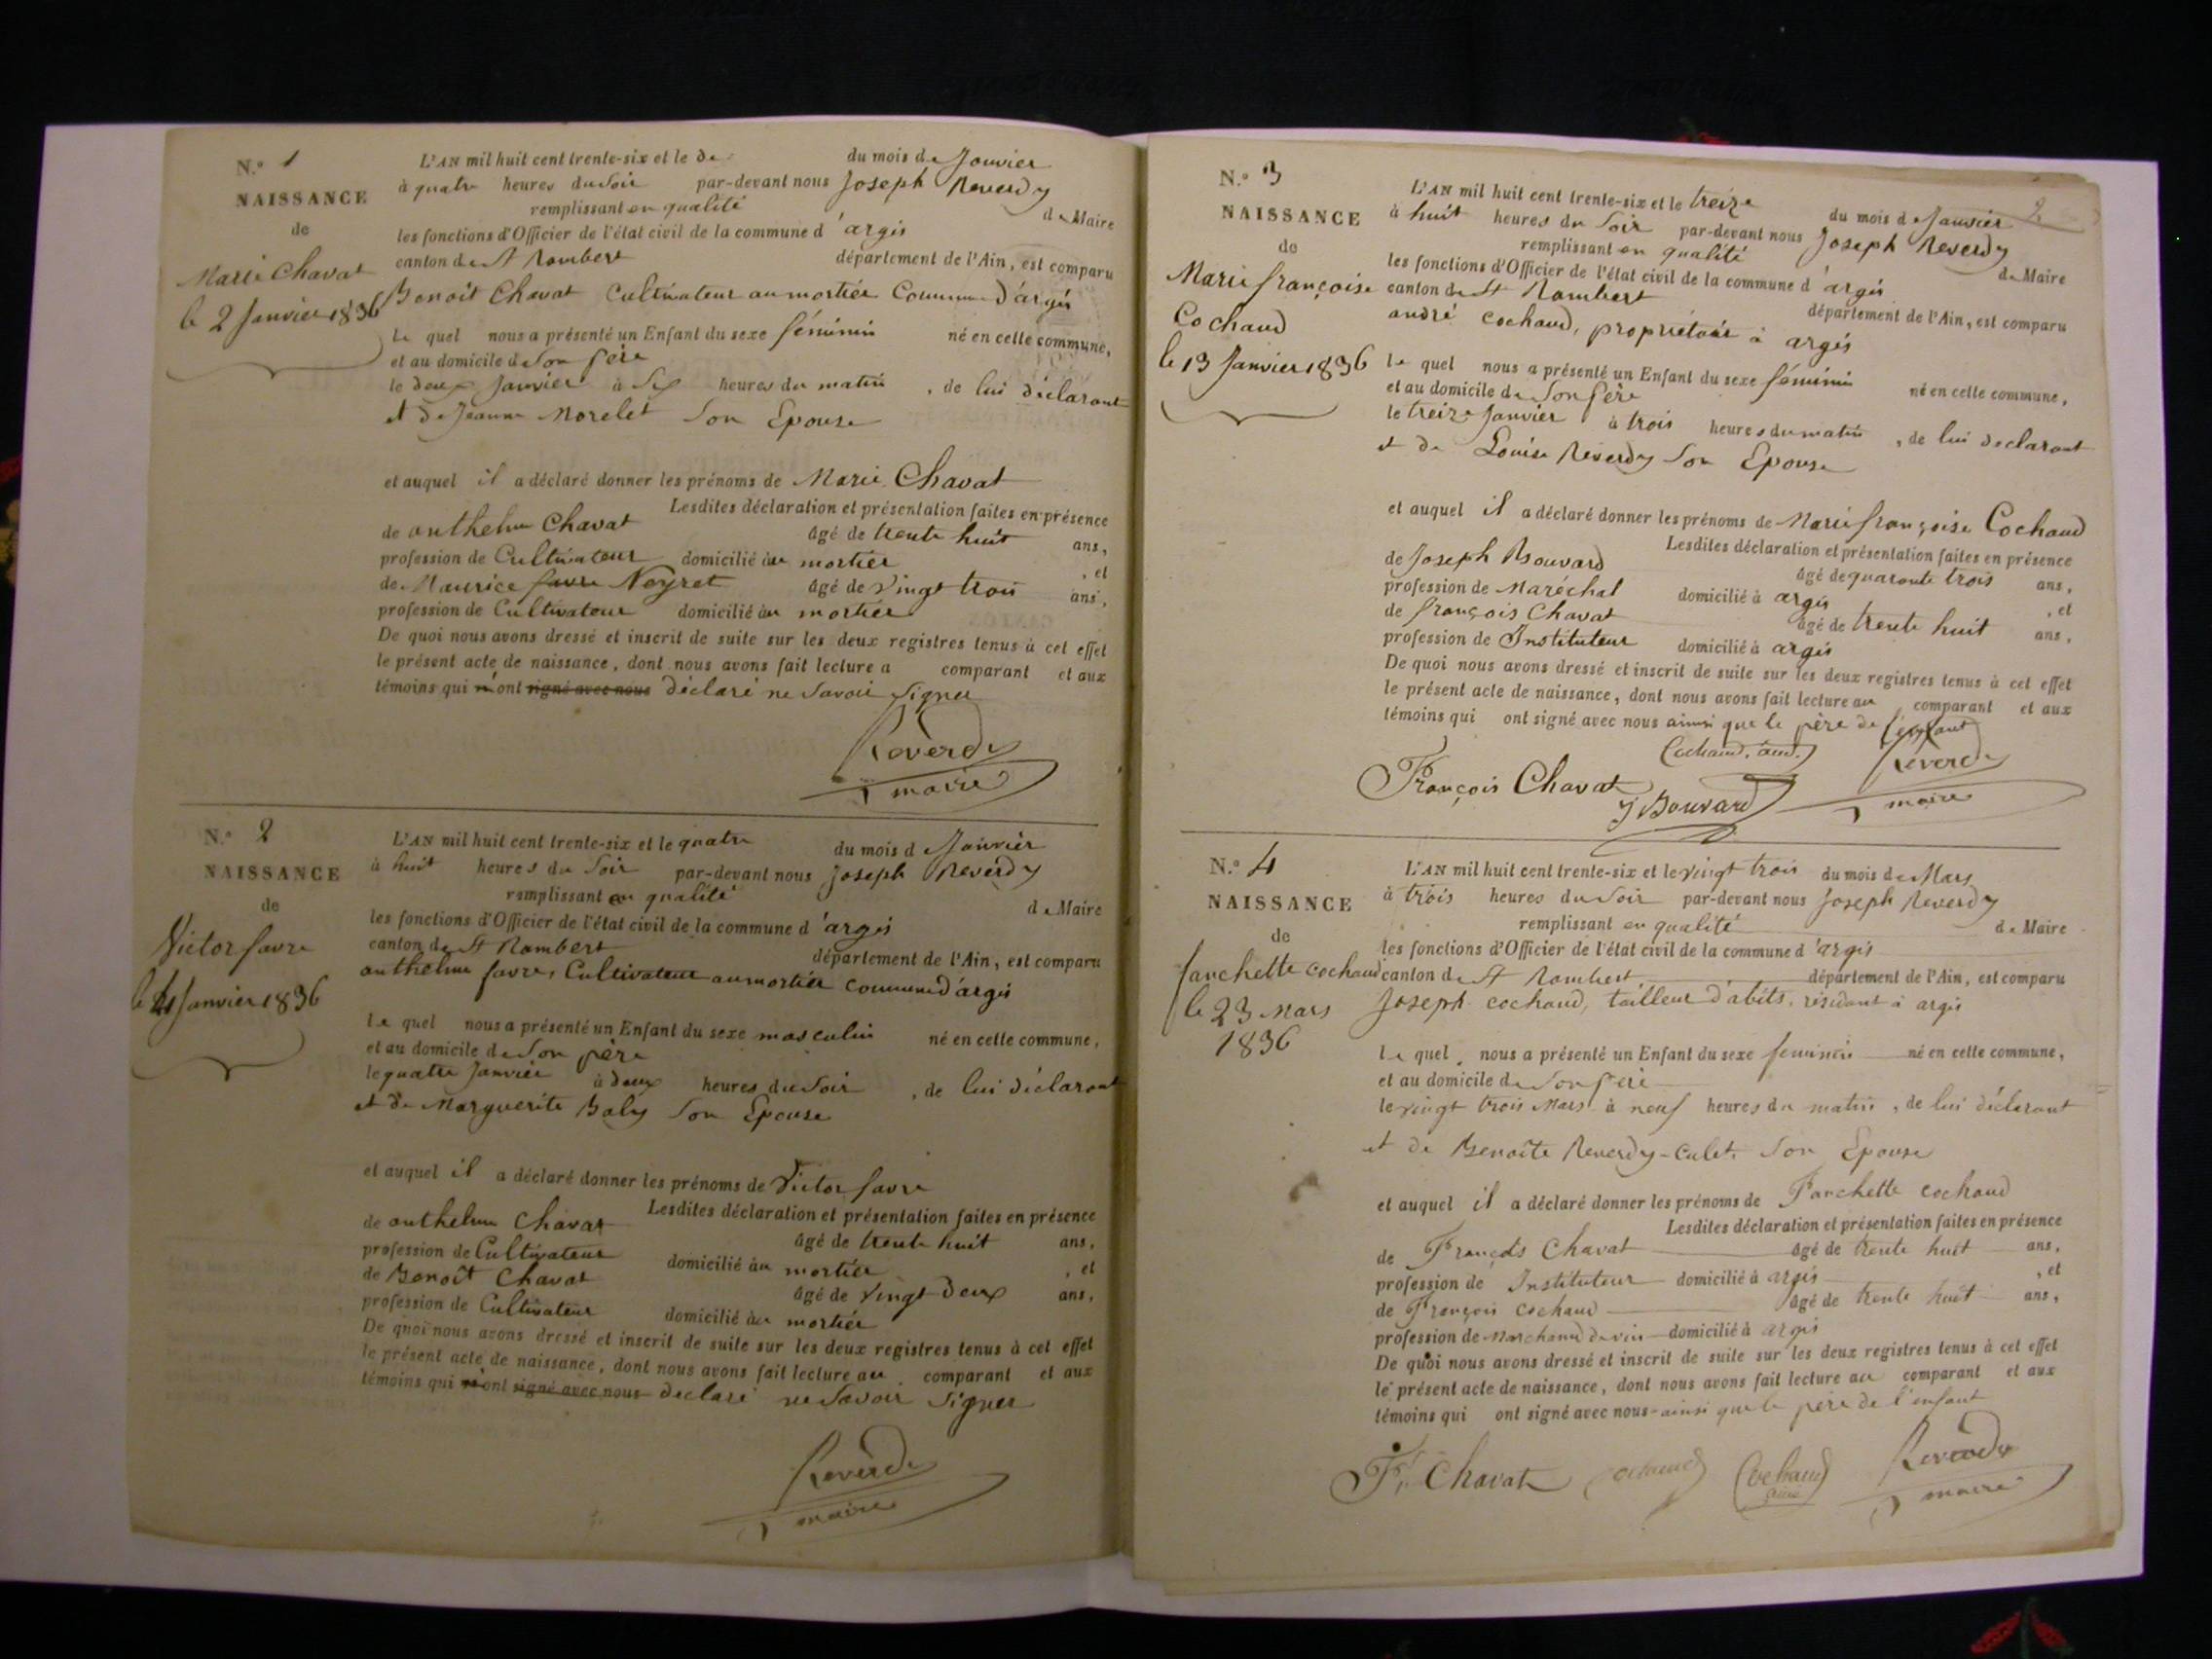 N.° 1
NAISSANCE
de
Marie Chavat
le 2 Janvier 1836
L'AN mil huit cent trente-six et le du mois de Janvier
à quatre heures du Soir par-devant nous Joseph Reverdy
remplissant en qualité de Maire
les fonctions d'Officier de l'état civil de la commune d'argis
canton de St Rambert département de l'Ain, est comparu
Benoît Chavat Cultivateur au mortier Commune d'argis
le quel nous a présenté un Enfant du sexe féminin né en cette commune,
et au domicile de Son père
le deux Janvier à Six heures du matin, de lui déclarant
et de Jeanne Morelet Son Epouse
et auquel il a déclaré donner les prénoms de Marie Chavat
Lesdites déclaration et présentation faites en présence
de anthelme Chavat âgé de trente huit ans,
profession de Cultivateur domicilié au mortier, et
de Maurice favre Neyret âgé de Vingt trois ans,
profession de Cultivateur domicilié au mortier
De quoi nous avons dressé et inscrit de suite sur les deux registres tenus à cet effet
le présent acte de naissance, dont nous avons fait lecture a comparant et aux
témoins qui n'ont signé avec nous déclaré ne Savoir Signer
Reverdy
maire
N.° 2
NAISSANCE
de
Victor favre
le 4 Janvier 1836
L'AN mil huit cent trente-six et le quatre du mois d Janvier
à huit heures du Soir par-devant nous Joseph Reverdy
remplissant en qualité de Maire
les fonctions d'Officier de l'état civil de la commune d'argis
canton de St Rambert département de l'Ain, est comparu
anthelme favre, Cultivateur au mortier commune d'argis
le quel nous a présenté un Enfant du sexe masculin né en cette commune,
et au domicile de Son père
le quatre Janvier à deux heures du Soir, de lui déclarant
et de Marguerite Baly Son Epouse
et auquel il a déclaré donner les prénoms de Victor favre
Lesdites déclaration et présentation faites en présence
de anthelme Chavat âgé de trente huit ans,
profession de Cultivateur domicilié au mortier, et
de Benoît Chavat âgé de Vingt-Deux ans,
profession de Cultivateur domicilié au mortier
De quoi nous avons dressé et inscrit de suite sur les deux registres tenus à cet effet
le présent acte de naissance, dont nous avons fait lecture au comparant et aux
témoins qui n'ont signé avec nous déclaré ne Savoir Signer
Reverdy
maire
2
N.° 3
NAISSANCE
de
Marie françoise
Cochaud
le 13 Janvier 1836
L'AN mil huit cent trente-six et le treize du mois de Janvier
à huit heures du Soir par-devant nous Joseph Reverdy
remplissant en qualité de Maire
les fonctions d'Officier de l'état civil de la commune d'argis
canton de St Rambert département de l'Ain, est comparu
andré cochaud, propriétaire à argis
le quel nous a présenté un Enfant du sexe féminin né en cette commune,
et au domicile de Son père
le treize Janvier à trois heures du matin, de lui déclarant
et de Louise Reverdy Son Epouse
et auquel il a déclaré donner les prénoms de Marie françoise Cochaud
Lesdites déclaration et présentation faites en présence
de Joseph Bouvard âgé de quarante trois ans,
profession de Maréchal domicilié à argis, et
de françois Chavat âgé de trente huit ans,
profession de Instituteur domicilié à argis
De quoi nous avons dressé et inscrit de suite sur les deux registres tenus à cet effet
le présent acte de naissance, dont nous avons fait lecture au comparant et aux
témoins qui ont signé avec nous ainsi que le père de l'enfant
Cochaud. and. Reverdy
François Chavat J Bouvard maire
N.° 4
NAISSANCE
de
fanchette cochaud
le 23 Mars
1836
L'AN mil huit cent trente-six et le vingt trois du mois de Mars
à trois heures du Soir par-devant nous Joseph Reverdy
remplissant en qualité de Maire
les fonctions d'Officier de l'état civil de la commune d'argis
canton de St Rambert département de l'Ain, est comparu
Joseph cochaud, tailleur d'abits, résidant à argis
le quel nous a présenté un Enfant du sexe feminin né en cette commune,
et au domicile de Son père
le vingt trois Mars à neuf heures du matin, de lui déclarant
et de Benoîte Reverdy-Culet Son Epouse
et auquel il a déclaré donner les prénoms de Fanchette cochaud
Lesdites déclaration et présentation faites en présence
de François Chavat âgé de trente huit ans,
profession de Instituteur domicilié à argis, et
de François cochaud âgé de trente huit ans,
profession de Marchand de vin domicilié à argis
De quoi nous avons dressé et inscrit de suite sur les deux registres tenus à cet effet
le présent acte de naissance, dont nous avons fait lecture au comparant et aux
témoins qui ont signé avec nous ainsi que le père de l'enfant
F. Chavat Cochaud Cochaud Reverdy
maire